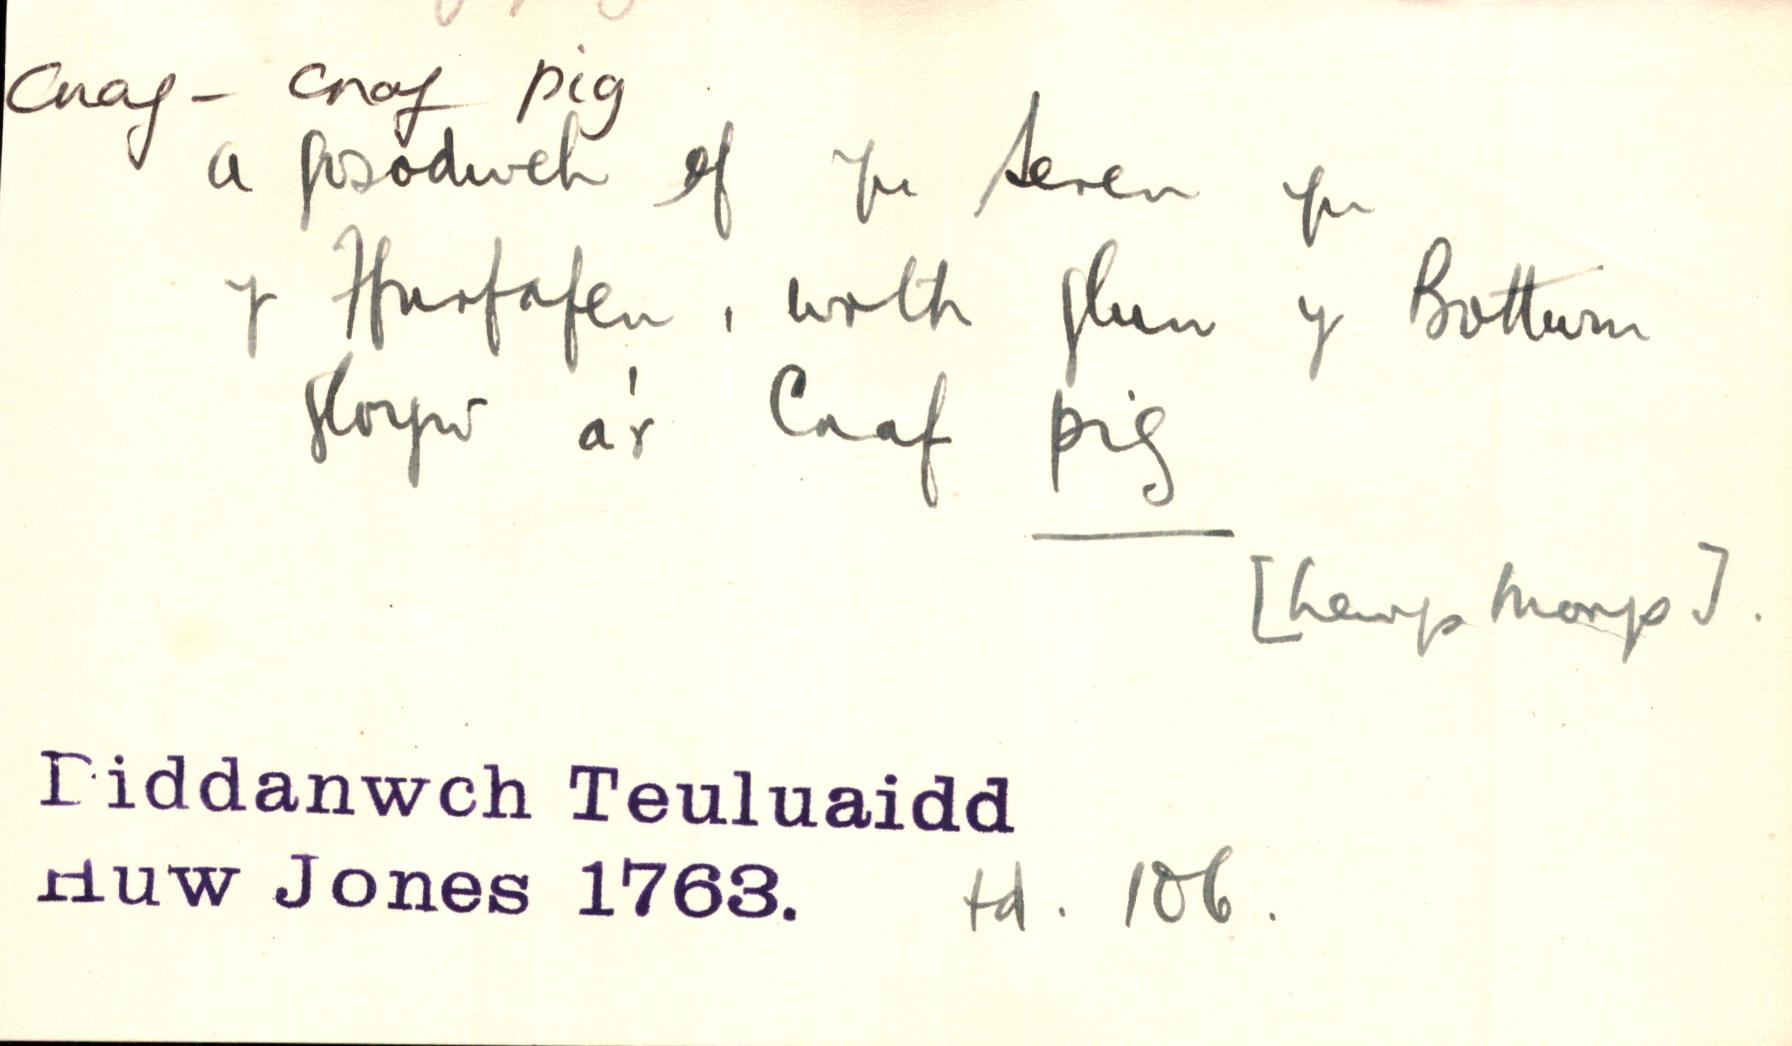 Cnaf - Cnaf pig
a gosodwch ef yn seren yn
y Ffurfafen, wrth glun y Bottwm
gloyw a'r Cnaf pig
[Lewys Morys].
Diddanwch Teuluaidd
Huw Jones 1763. td. 106.